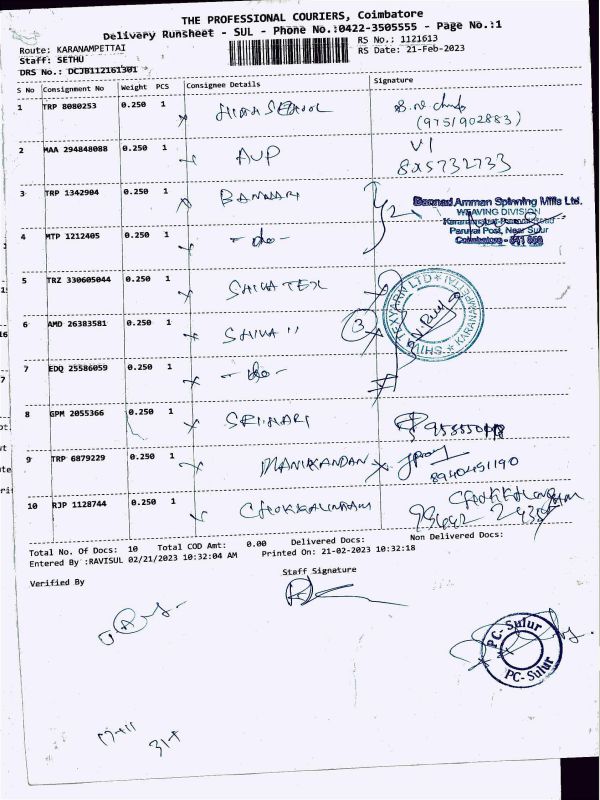 THE PROFESSIONAL COURIERS, Coimbatore
Delivery Runsheet - SUL - Phone No.:0422-3505555 - Page No.:1
Route: KARANAMPETTAI
RS No.: 1121613
Staff: SETHU
RS Date: 21-Feb-2023
DRS No.: DCJB112161301
S No Consignment No Weight PCS Consignee Details Signature
1 TRP 8080253 0.250 1
(9751902883)
2 MAA 294848088 0.250 1 AVP
V1
8x5732733
3 TRP 1342904 0.250 1 BANNARI
Bannari Amman Spinning Mills Ltd.
WEAVING DIVISION
Paruvai Post, Near Sulur
4 MTP 1212405 0.250 1 -do-
5 TRZ 330605044 0.250 1 SHIVA TEX
SHIVA TEXYARN LTD * KARANAMPETTAI *
6 AMD 26383581 0.250 1 SHIVA 11
3
7 EDQ 25586059 0.250 1 -do-
8 GPM 2055366 0.250 1 SRIHARI
9 TRP 6879229 0.250 1 MANIKANDAN
8940451190
10 RJP 1128744 0.250 1 CHOKKALINGAM
CHOKKALINGAM
Total No. Of Docs: 10 Total COD Amt: 0.00 Delivered Docs: Non Delivered Docs:
Entered By :RAVISUL 02/21/2023 10:32:04 AM Printed On: 21-02-2023 10:32:18
Staff Signature
Verified By
PC-Sulur
PC-Sulur